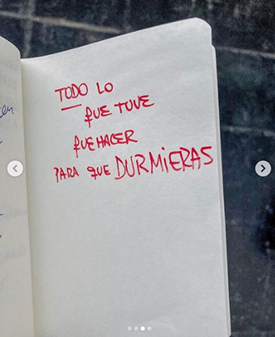 TODO LO
QUE TUVE
QUE HACER
PARA QUE DURMIERAS